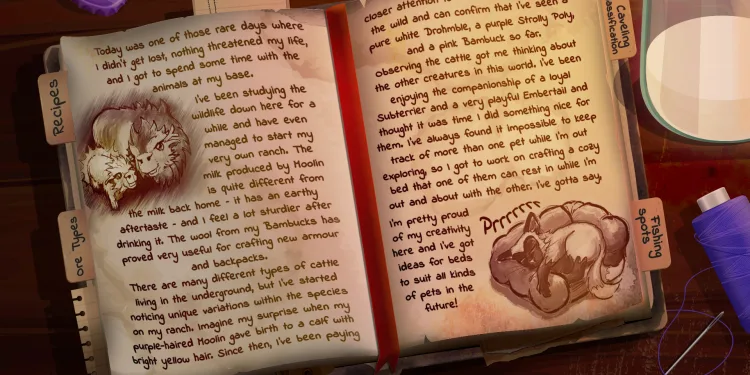 Recipes
Ore Types
Today was one of those rare days where
I didn't get lost, nothing threatened my life,
and I got to spend some time with the
animals at my base.
I've been studying the
wildlife down here for a
while and have even
managed to start my
very own ranch. The
milk produced by Moolin
is quite different from
the milk back home - it has an earthy
aftertaste - and I feel a lot sturdier after
drinking it. The wool from my Bambucks has
proved very useful for crafting new armour
and backpacks.
There are many different types of cattle
living in the underground, but I've started
noticing unique variations within the species
on my ranch. Imagine my surprise when my
purple-haired Moolin gave birth to a calf with
bright yellow hair. Since then, I've been paying
closer attention
the wild and can confirm that I've seen a
pure white Drohmble, a purple Strolly Poly,
and a pink Bambuck so far.
Observing the cattle got me thinking about
the other creatures in this world. I've been
enjoying the companionship of a loyal
Subterrier and a very playful Embertail and
thought it was time I did something nice for
them. I've always found it impossible to keep
track of more than one pet while I'm out
exploring, so I got to work on crafting a cozy
bed that one of them can rest in while I'm
out and about with the other. I've gotta say,
I'm pretty proud
of my creativity
here and I've got
ideas for beds
to suit all kinds
of pets in the
future!
Prrrrrr
Caveling
Fishing
Spots